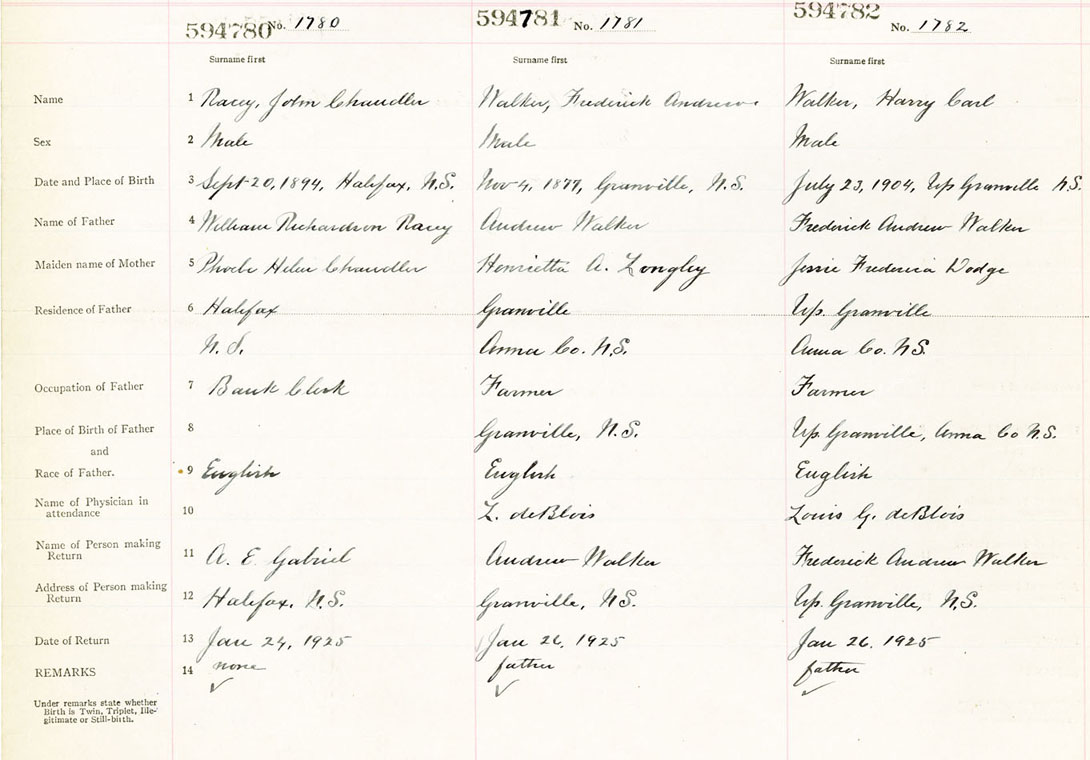 594780 No. 1780 594781 No. 1781 594782 No. 1782
Surname first Surname first Surname first
Name 1 Racey, John Chandler Walker, Frederick Andrew Walker, Harry Carl
Sex 2 Male Male Male
Date and Place of Birth 3 Sept 20, 1894, Halifax, N.S. Nov 4, 1877, Granville, N.S. July 23, 1904, Up Granville N.S.
Name of Father 4 William Richardson Racey Andrew Walker Frederick Andrew Walker
Maiden name of Mother 5 Phoebe Helen Chandler Henrietta A. Longley Jessie Frederica Dodge
Residence of Father 6 Halifax Granville Up. Granville
N.S. Anna Co. N.S. Anna Co. N.S.
Occupation of Father 7 Bank Clerk Farmer Farmer
Place of Birth of Father 8 Granville, N.S. Up. Granville, Anna Co N.S.
and
Race of Father. 9 English English English
Name of Physician in
attendance 10 L. deBlois Louis G. deBlois
Name of Person making
Return 11 A. E. Gabriel Andrew Walker Frederick Andrew Walker
Address of Person making
Return 12 Halifax, N.S. Granville, N.S. Up. Granville, N.S.
Date of Return 13 Jan 24, 1925 Jan 26, 1925 Jan 26, 1925
REMARKS 14 none father father
Under remarks state whether
Birth is Twin, Triplet, Ille-
gitimate or Still-birth.